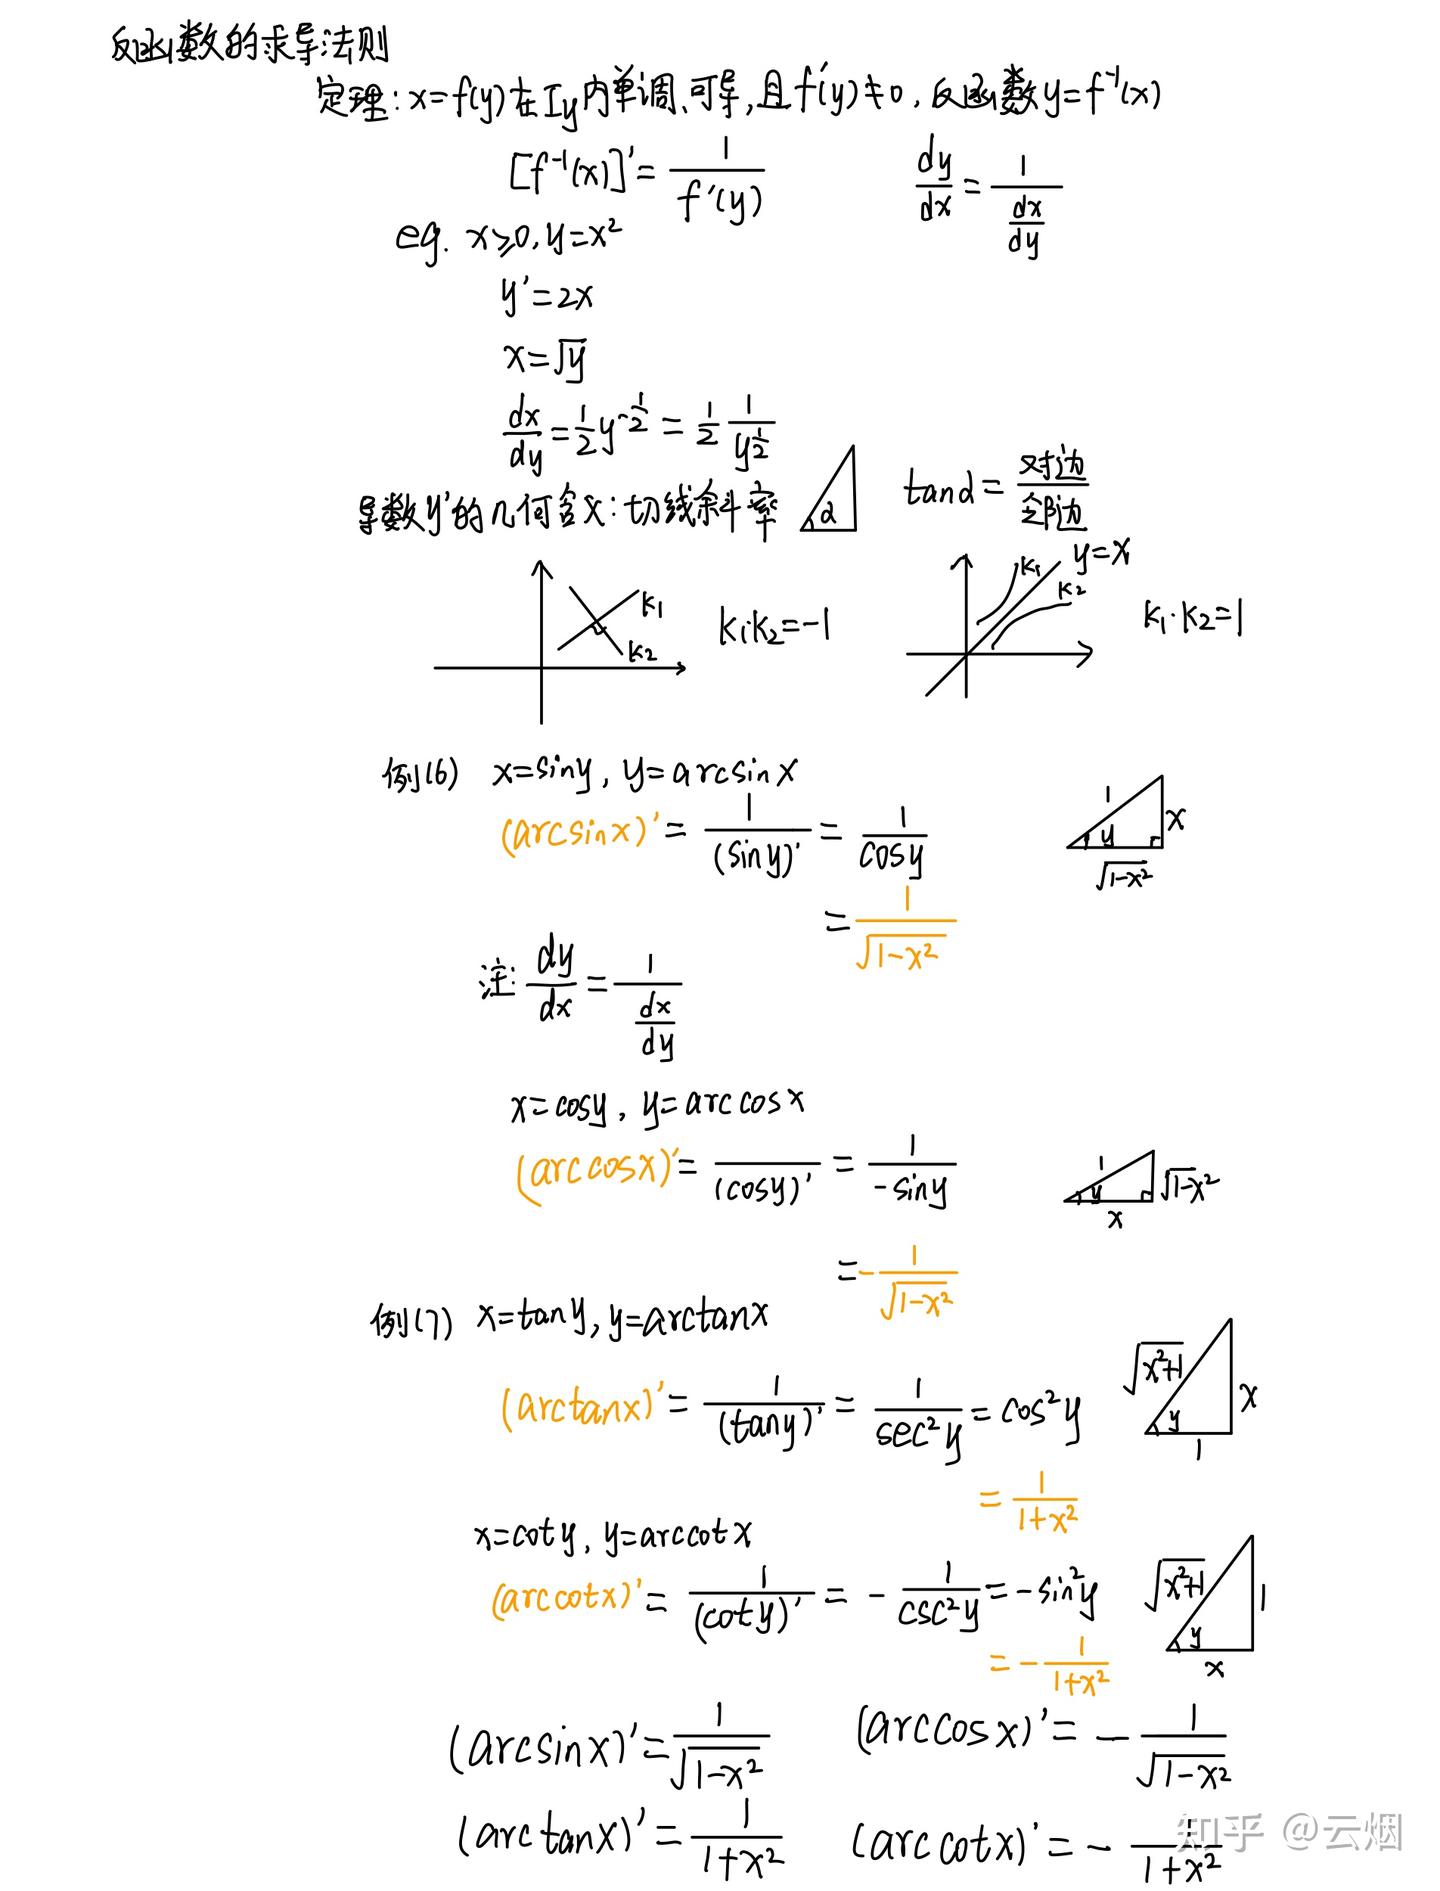 反函数的求导法则
定理:x=f(y)在Iy内单调、可导,且f'(y)≠0,反函数y=f⁻¹(x)
[f⁻¹(x)]'=1/f'(y)    dy/dx=1/(dx/dy)
eg. x≥0,y=x²
y'=2x
x=√y
dx/dy=1/2 y^(-1/2)=1/2 1/y^(1/2)
导数y'的几何含义:切线斜率 α    tanα=对边/邻边
k₁ k₂ k₁·k₂=-1    k₁ y=x k₂ k₁·k₂=1
例(6) x=siny, y=arcsinx
(arcsinx)'=1/(siny)'=1/cosy    1 x y √(1-x²)
=1/√(1-x²)
注:dy/dx=1/(dx/dy)
x=cosy, y=arccosx
(arccosx)'= /(cosy)'=1/-siny    1 y √(1-x²) x
=-1/√(1-x²)
例(7) x=tany, y=arctanx
(arctanx)'=1/(tany)'=1/sec²y=cos²y    √(x²+1) x y 1
=1/(1+x²)
x=coty, y=arccotx
(arccotx)'=1/(coty)'=-1/csc²y=-sin²y    √(x²+1) 1 y x
=-1/(1+x²)
(arcsinx)'=1/√(1-x²)    (arccosx)'=-1/√(1-x²)
(arctanx)'=1/(1+x²)    (arccotx)'=-1/(1+x²)
知乎 @云烟